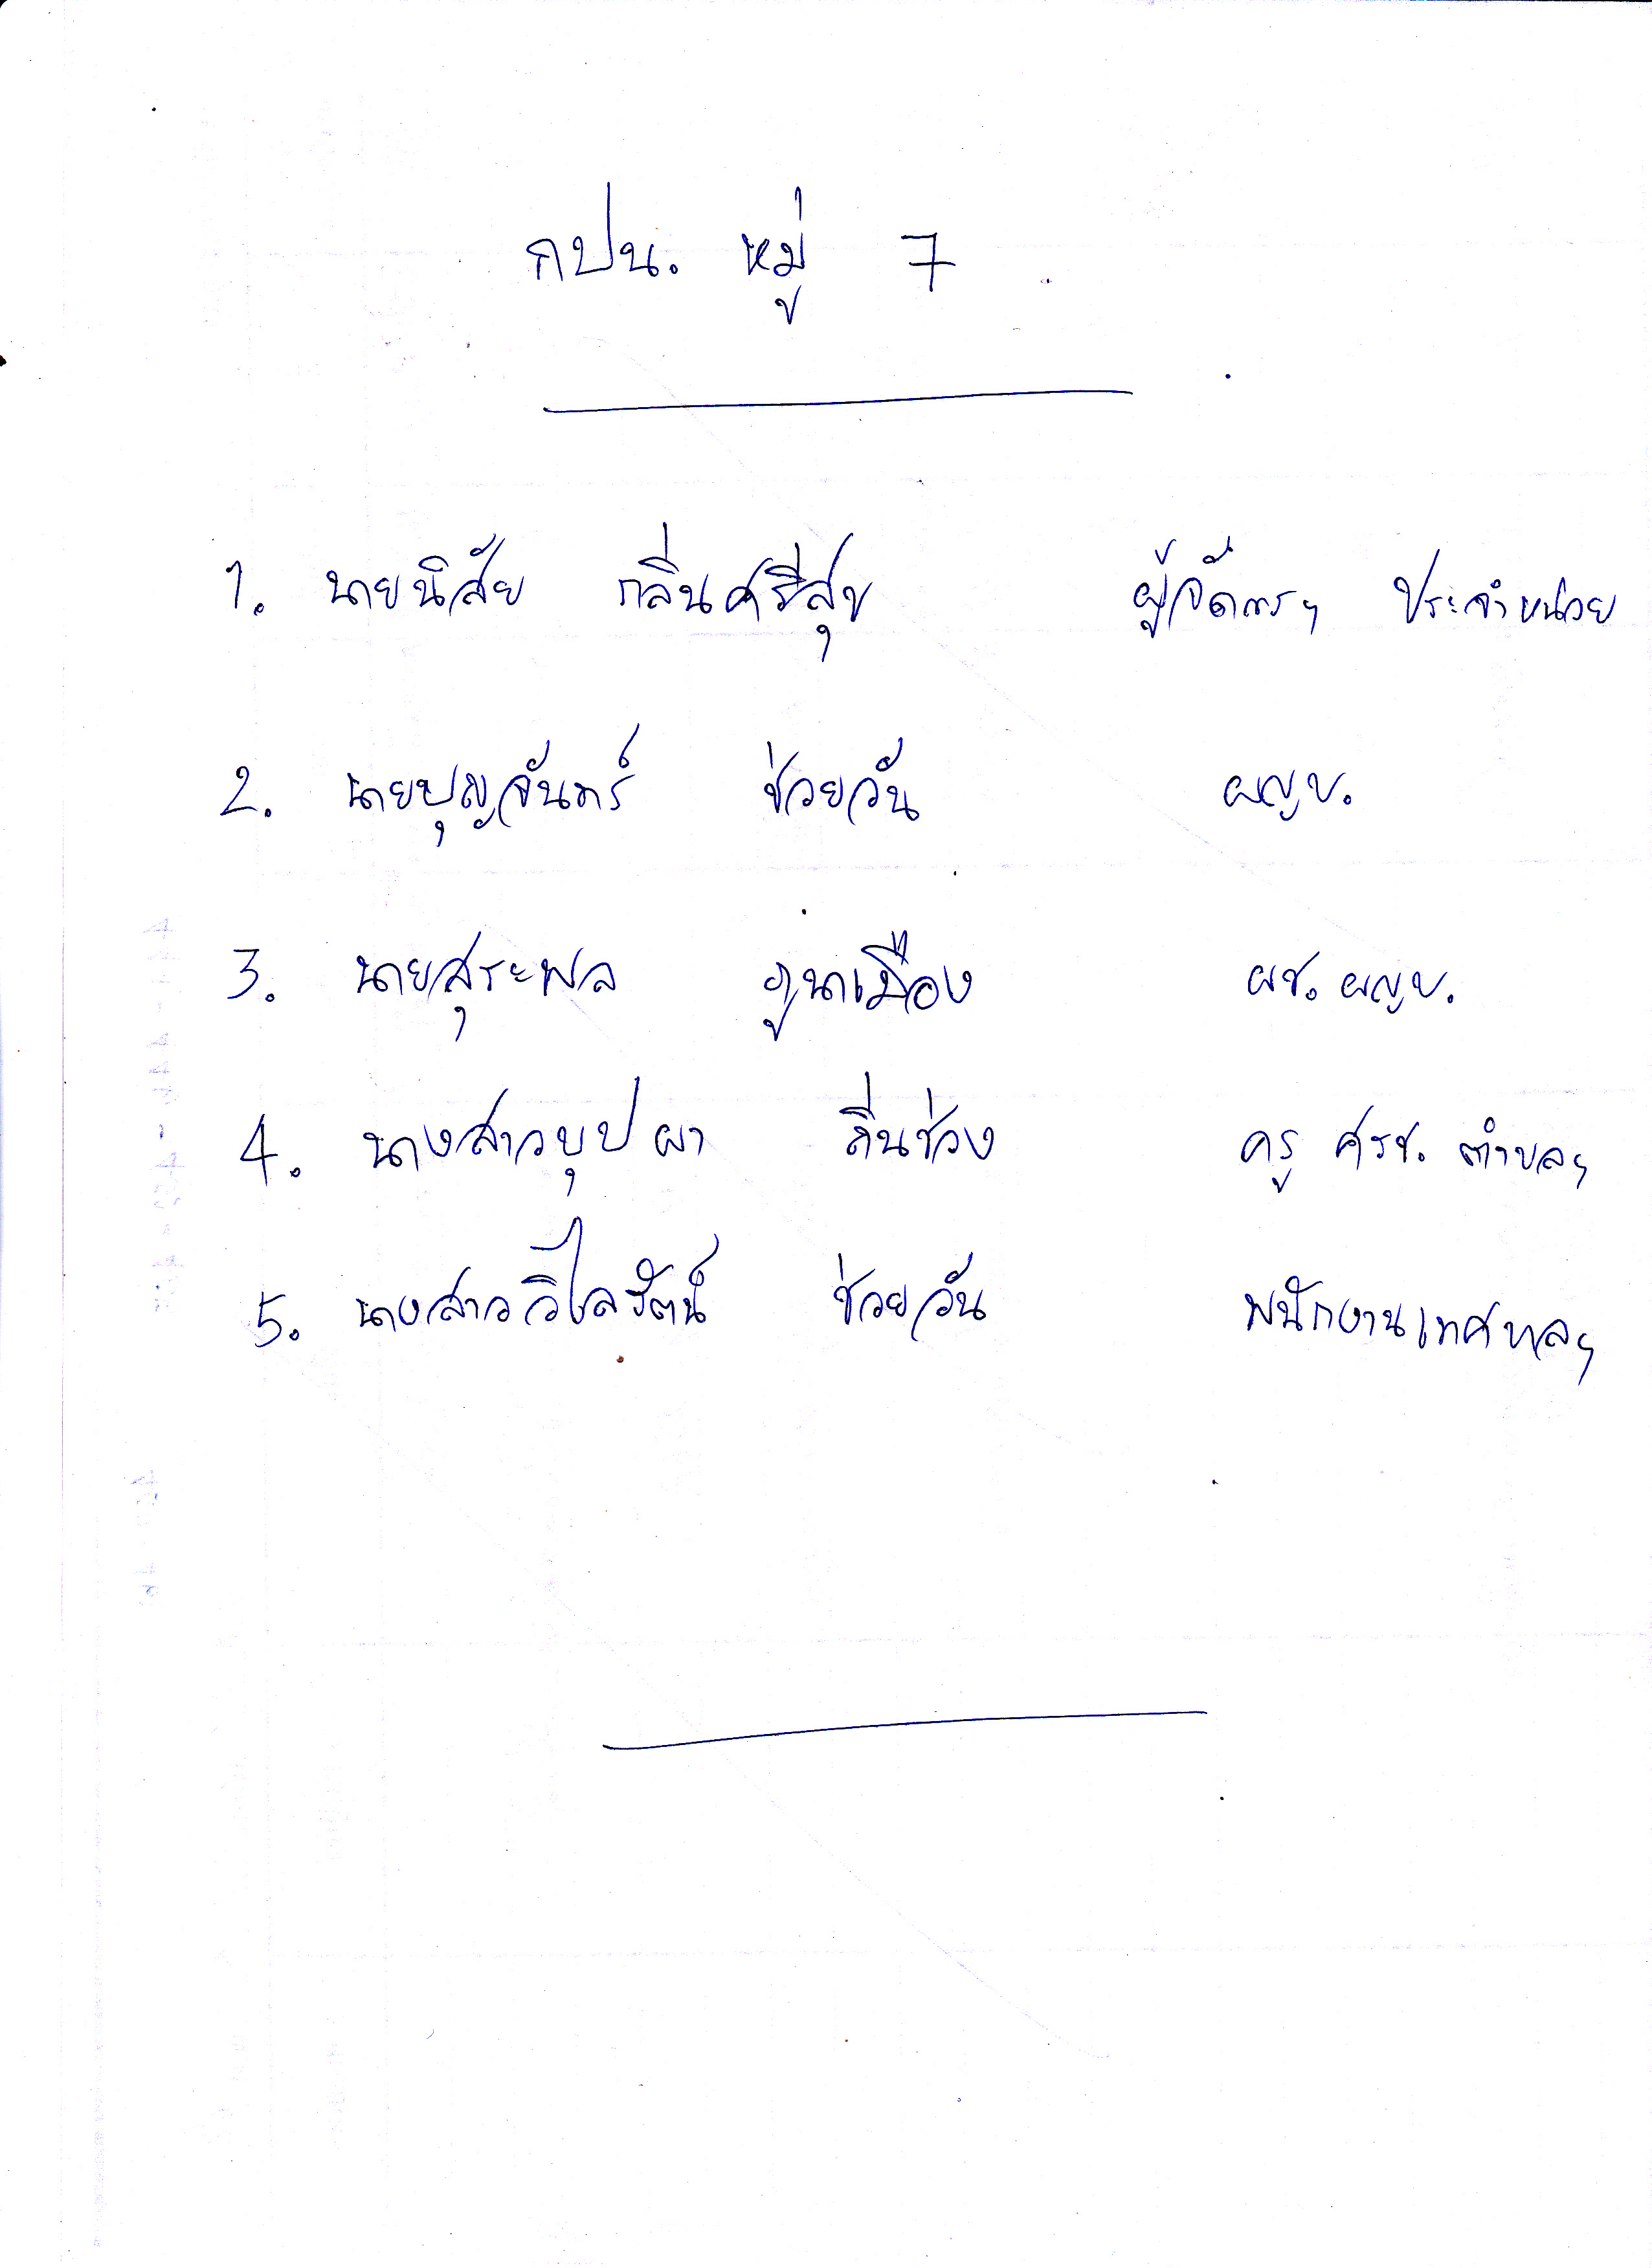 กปน. หมู่ 7
1. นายนิสัย กลิ่นศรีสุข ผู้จัดการฯ ประจำหน่วย
2. นายบุญจันทร์ ช่วยวัน ผญบ.
3. นายสุระพล ภูนาเมือง ผช. ผญบ.
4. นางสาวบุปผา ถิ่นช่วง ครู ศรช. ตำบลฯ
5. นางสาววิไลรัตน์ ช่วยวัน พนักงานเทศบาลฯ